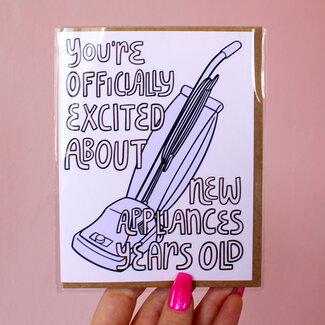 YOU'RE
OFFICIALLY
EXCITED
ABOUT
NEW
APPLIANCES
YEARS OLD